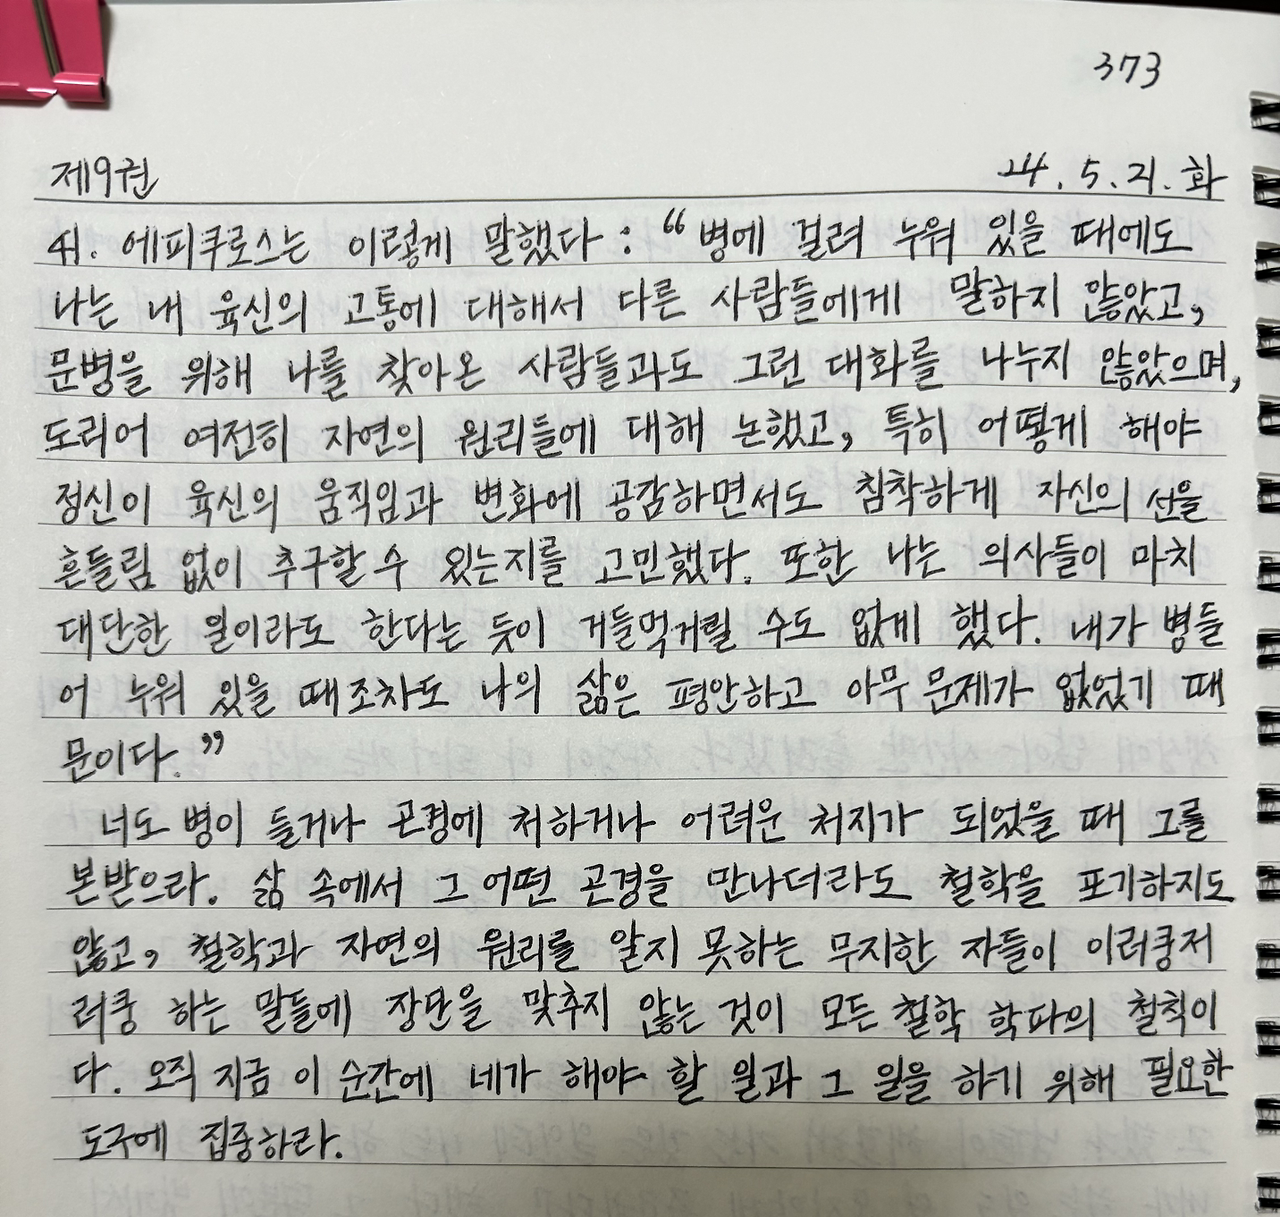 373
제9권 24.5.21.화
41. 에피쿠로스는 이렇게 말했다 : “병에 걸려 누워 있을 때에도
나는 내 육신의 고통에 대해서 다른 사람들에게 말하지 않았고,
문병을 위해 나를 찾아온 사람들과도 그런 대화를 나누지 않았으며,
도리어 여전히 자연의 원리들에 대해 논했고, 특히 어떻게 해야
정신이 육신의 움직임과 변화에 공감하면서도 침착하게 자신의 선을
흔들림 없이 추구할 수 있는지를 고민했다. 또한 나는 의사들이 마치
대단한 일이라도 한다는 듯이 거들먹거릴 수도 없게 했다. 내가 병들
어 누워 있을 때조차도 나의 삶은 평안하고 아무 문제가 없었기 때
문이다.”
너도 병이 들거나 곤경에 처하거나 어려운 처지가 되었을 때 그를
본받으라. 삶 속에서 그 어떤 곤경을 만나더라도 철학을 포기하지도
않고, 철학과 자연의 원리를 알지 못하는 무지한 자들이 이러쿵저
러쿵 하는 말들에 장단을 맞추지 않는 것이 모든 철학 학파의 철칙이
다. 오직 지금 이 순간에 네가 해야 할 일과 그 일을 하기 위해 필요한
도구에 집중하라.